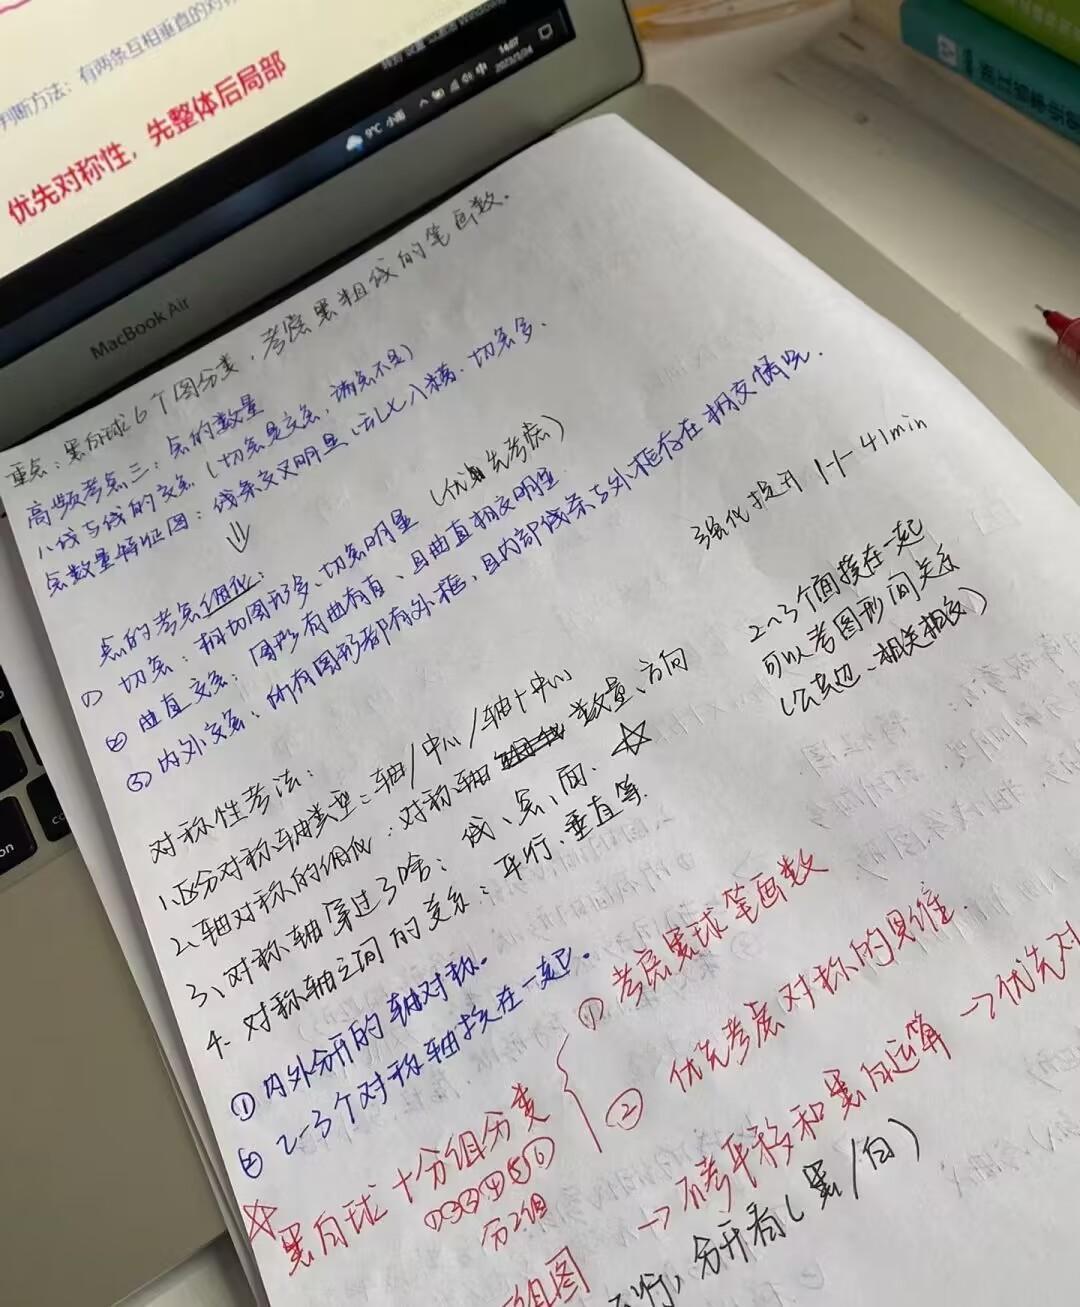 判断方法：有两条互相垂直的对称
优先对称性，先整体后局部
9°C 小雨
中
14:07
MacBook Air
重点：黑白球6个图分类，考虑黑粗线的笔画数．
高频考点三：点的数量
1、线与线的交点（切点是交点，端点不是）
点数量特征图：线条交叉明显、乱七八糟、切点多．
点的考点细化：
① 切点：相切图形多、切点明显（优先考虑）
② 曲直交点：图形有曲有直、且曲直相交明显
③ 内外交点：所有图形都有外框，且内部线条与外框存在相交情况．
强化提升 1-1- 41min
2~3个面挨在一起
可以考图形间关系
（公共边、相关相交）
对称性考法：
1、区分对称轴类型：轴/中心/轴+中心
2、轴对称的细化：对称轴 数量、方向
3、对称轴穿过了啥：线、点、面．☆
4、对称轴之间的关系：平行、垂直等．
① 内外分开的轴对称．
② 2-3个对称轴挨在一起．
☆ 黑白球＋分组分类
①②③④⑤⑥
分2组
① 考虑黑球笔画数
② 优先考虑对称的思维．
组图 → 不考平移和黑白运算 → 优先对
不行，分开看（黑/白）